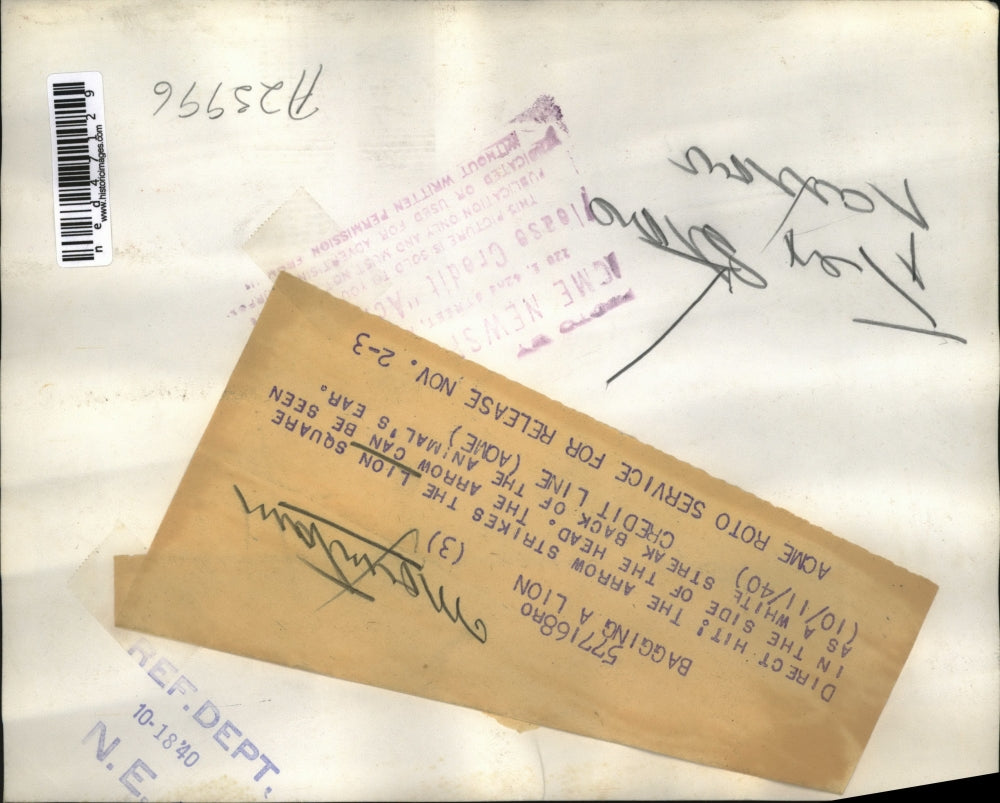 A25996
ned47129
www.historicimages.com
ACME NEWS
220 E. 42nd STREET,
Please Credit "AC
THIS PICTURE IS SOLD TO YOU
PUBLICATION ONLY AND MUST NOT
USED FOR ADVERTISING
DICATED OR
WITHOUT WRITTEN PERMISSION
577168RO
BAGGING A LION (3)
DIRECT HIT! THE ARROW STRIKES THE LION SQUARE
IN THE SIDE OF THE HEAD. THE ARROW CAN BE SEEN
AS A WHITE STREAK BACK OF THE ANIMAL'S EAR.
(10/11/40) CREDIT LINE (ACME)
ACME ROTO SERVICE FOR RELEASE NOV. 2-3
REF. DEPT.
10-18'40
N.E.